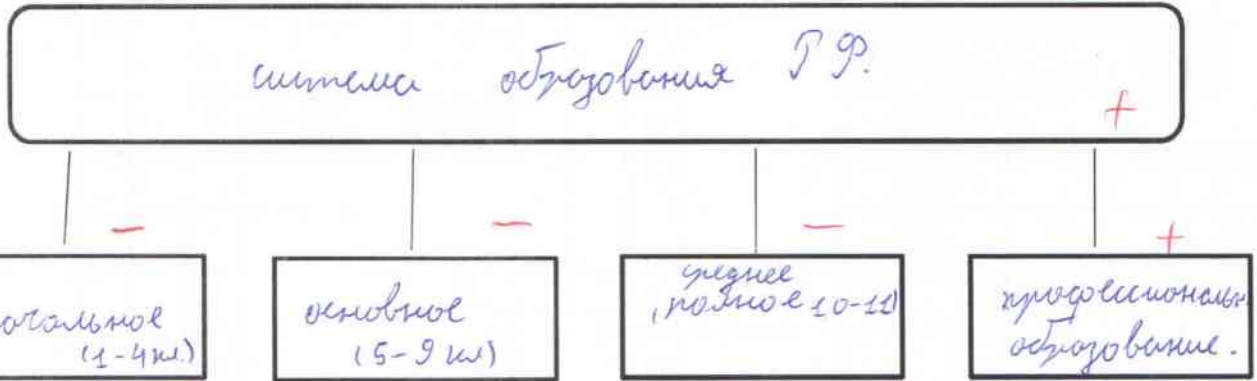 система образования РФ.
+
- - - +
начальное
(1-4 кл.)
основное
(5-9 кл)
среднее
(полное 10-11)
профессиональн
образование.